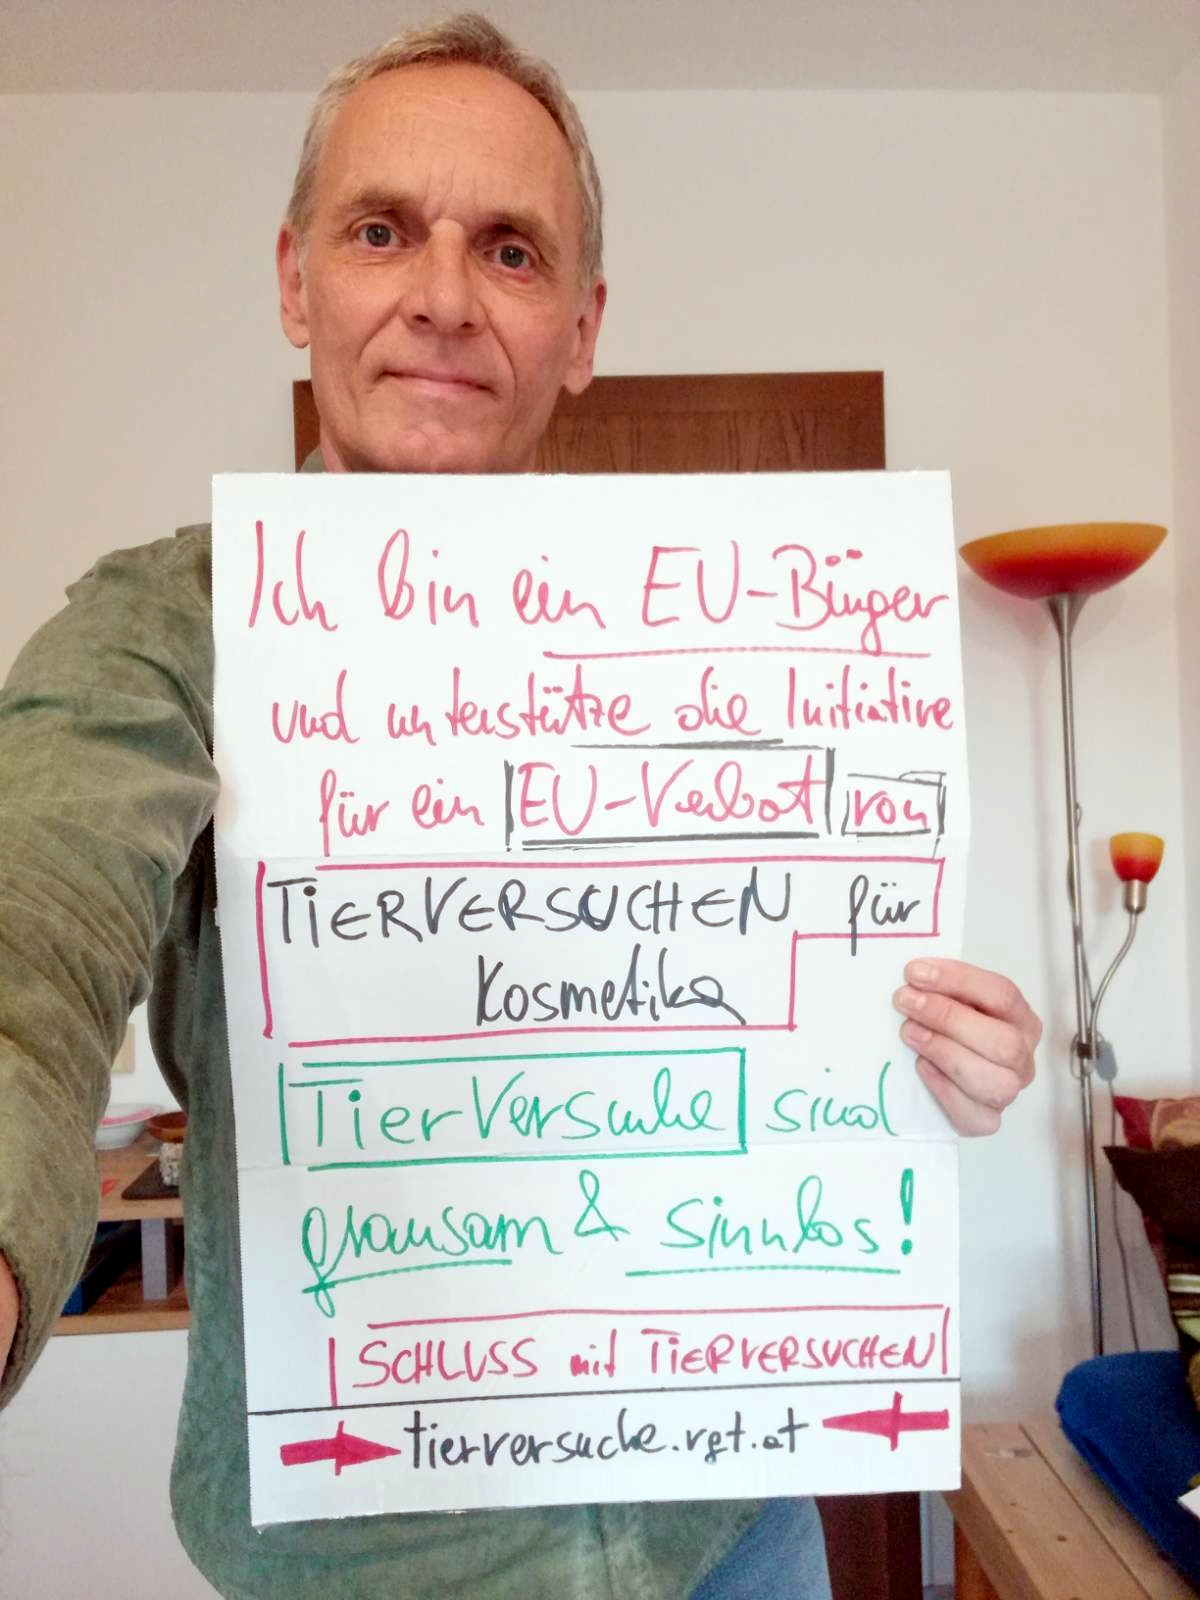 Ich bin ein EU-Bürger
und unterstütze die Initiative
für ein EU-Verbot von
TIERVERSUCHEN für
Kosmetika
TierVersuche sind
grausam & sinnlos!
SCHLUSS mit TIERVERSUCHEN
tierversuche.rgt.at